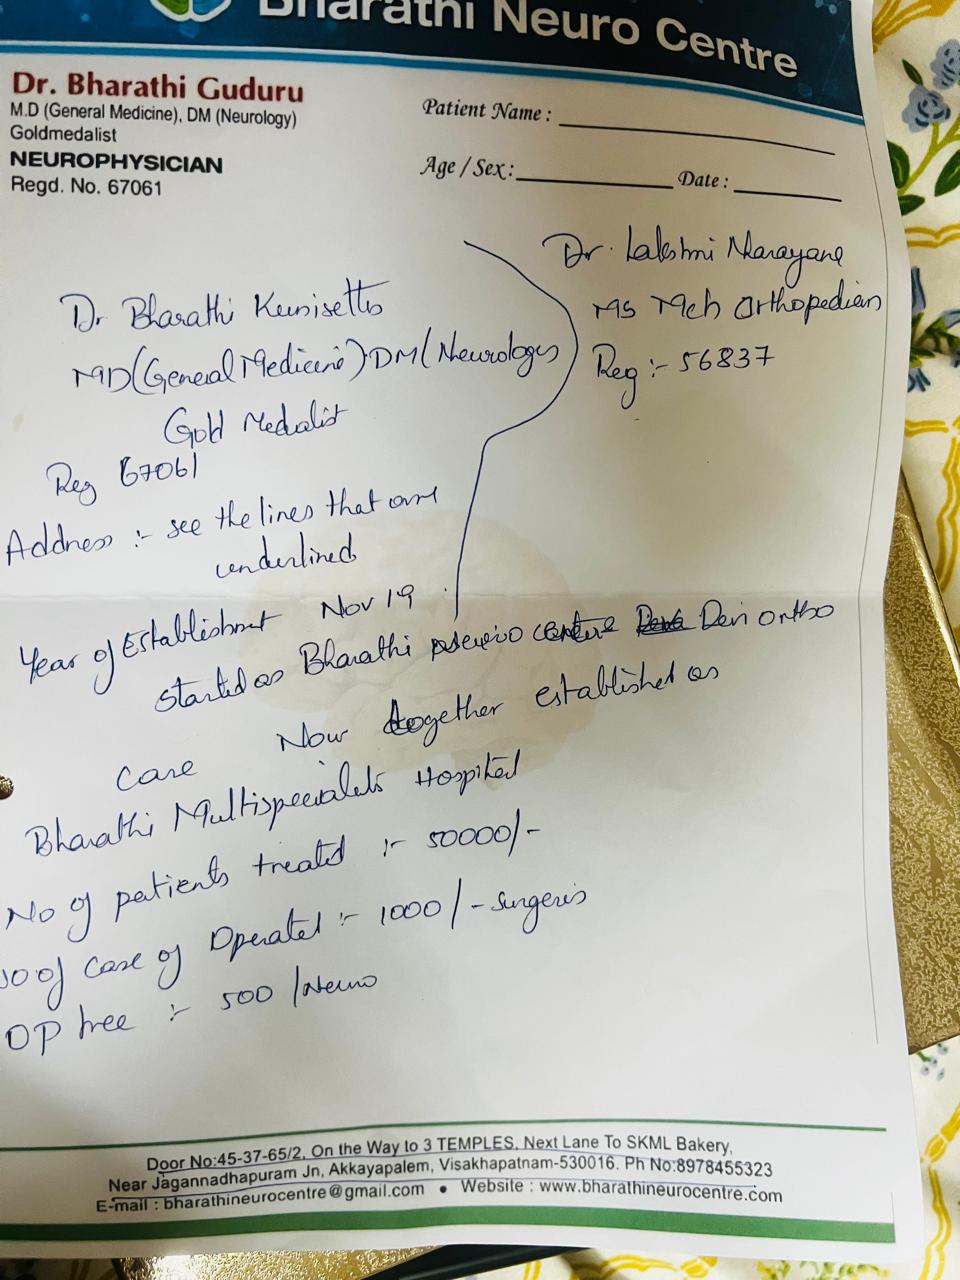 Bharathi Neuro Centre
Dr. Bharathi Guduru
M.D (General Medicine), DM (Neurology)
Goldmedalist
NEUROPHYSICIAN
Regd. No. 67061
Patient Name :
Age / Sex :
Date :
Dr. Lakshmi Narayana
MS Mch Orthopedian
Reg :- 56837
Dr Bharathi
MD (General Medicine) DM (Neurology)
Gold Medalist
Reg 67061
Address :- see the lines that are
underlined
Year of Establishment Nov 19
started as Bharathi neuro centre Devi ortho
care Now together established as
Bharathi Multispeciality Hospital
No of patients treated :- 50000/-
No of Case of Operated :- 1000/- surgeries
OP free :- 500 /Neuro
Door No:45-37-65/2, On the Way to 3 TEMPLES, Next Lane To SKML Bakery,
Near Jagannadhapuram Jn, Akkayapalem, Visakhapatnam-530016. Ph No:8978455323
E-mail : bharathineurocentre@gmail.com • Website : www.bharathineurocentre.com